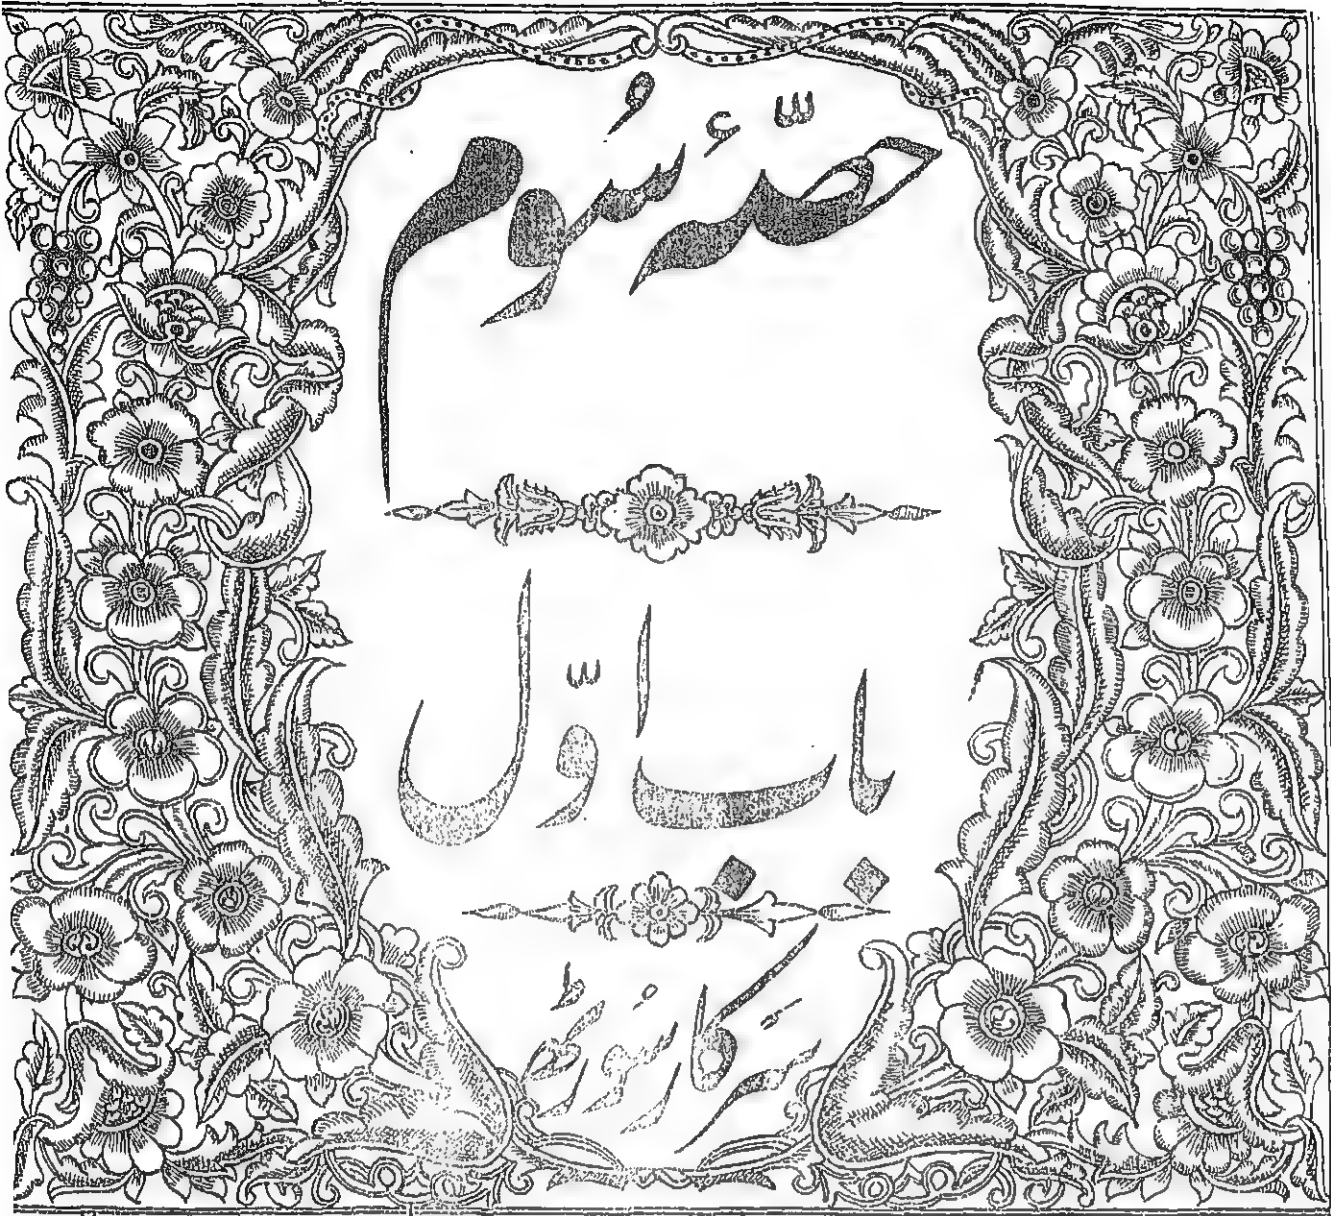 حصّہ سُوم
باب اوّل
سرکار سُورٹھ